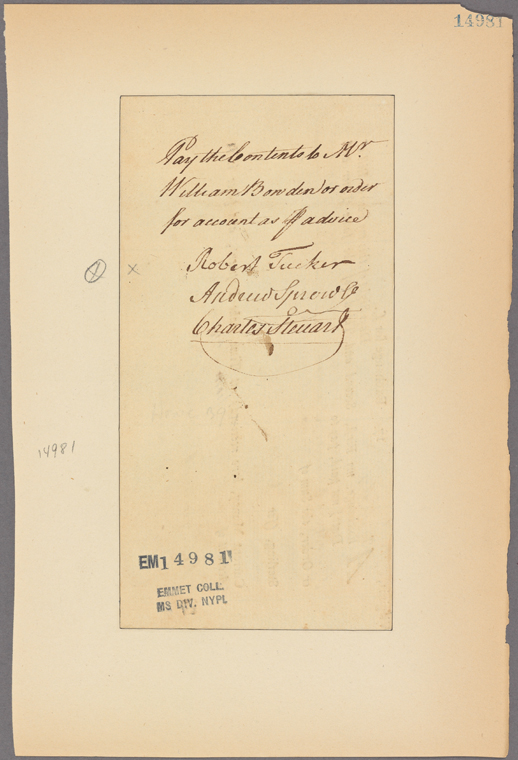 14981
Pay the Contents to Mr.
William Bowden or order
for account as ⅌ advice
Robert Tucker
Andrew Sprowle
Charles Steuart
14981
EM14981
EMMET COLL.
MS DIV. NYPL